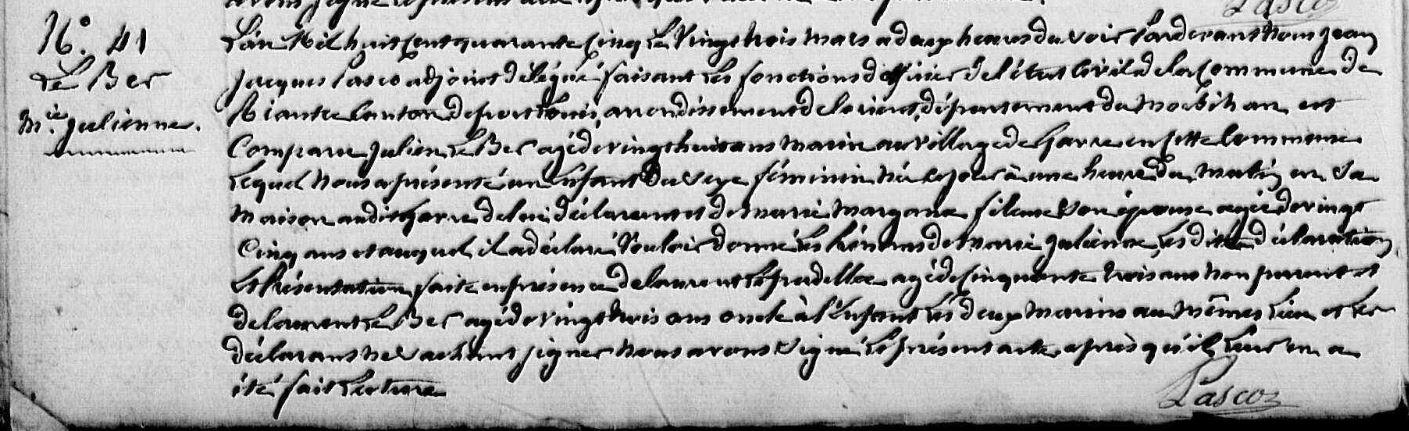 N.° 41
Le Bec
M.ie julienne.
L'an Mil huit Cent quarante Cinq Le Vingt trois mars a deux heures du soir Pardevant Nous jean
jacques Lasco adjoint délégué faisant Les fonctions d'officier de l'état Civil de la Commune de
Riantec Canton de port Louis, arrondissement de lorient, département du Morbihan est
Comparu julien Le Bec agé de vingt huit ans marin au village de en Cette Commune
Lequel Nous a présenté un Enfant du sexe féminin Né Ce jour à une heure du matin en Sa
Maison audit de lui déclarant et de marie fileuse Son épouse agée de vingt
Cinq ans et auquel il a déclaré Vouloir donné Les Prénoms de Marie julienne, Les dites déclaration
Et Présentation faite en présence de laurent agé de Cinquante trois ans Non parent et
de laurent Le Bec agé de vingt trois ans oncle à l'Enfant Les deux Marins au Mêmes Lieu et Les
déclarans ne Sachant signer Nous avons Signé Le présent acte après qu'il Leur en a
été fait Lecture
Lasco